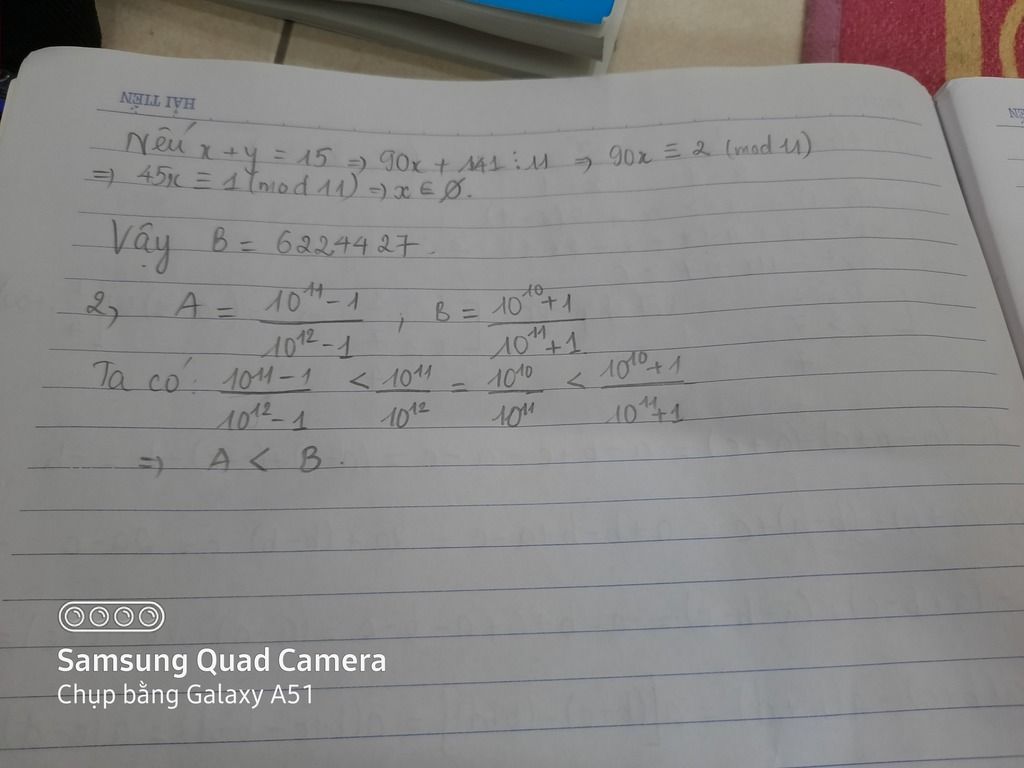 HẢI TIẾN
Nếu x + y = 15 ⇒ 90x + 141 ⋮ 11 ⇒ 90x ≡ 2 (mod 11)
⇒ 45x ≡ 1 (mod 11) ⇒ x ∈ ∅.
Vậy B = 6224427.
2, A = (10^11 - 1)/(10^12 - 1) ; B = (10^10 + 1)/(10^11 + 1)
Ta có: (10^11 - 1)/(10^12 - 1) < 10^11/10^12 = 10^10/10^11 < (10^10 + 1)/(10^11 + 1)
⇒ A < B.
Samsung Quad Camera
Chụp bằng Galaxy A51